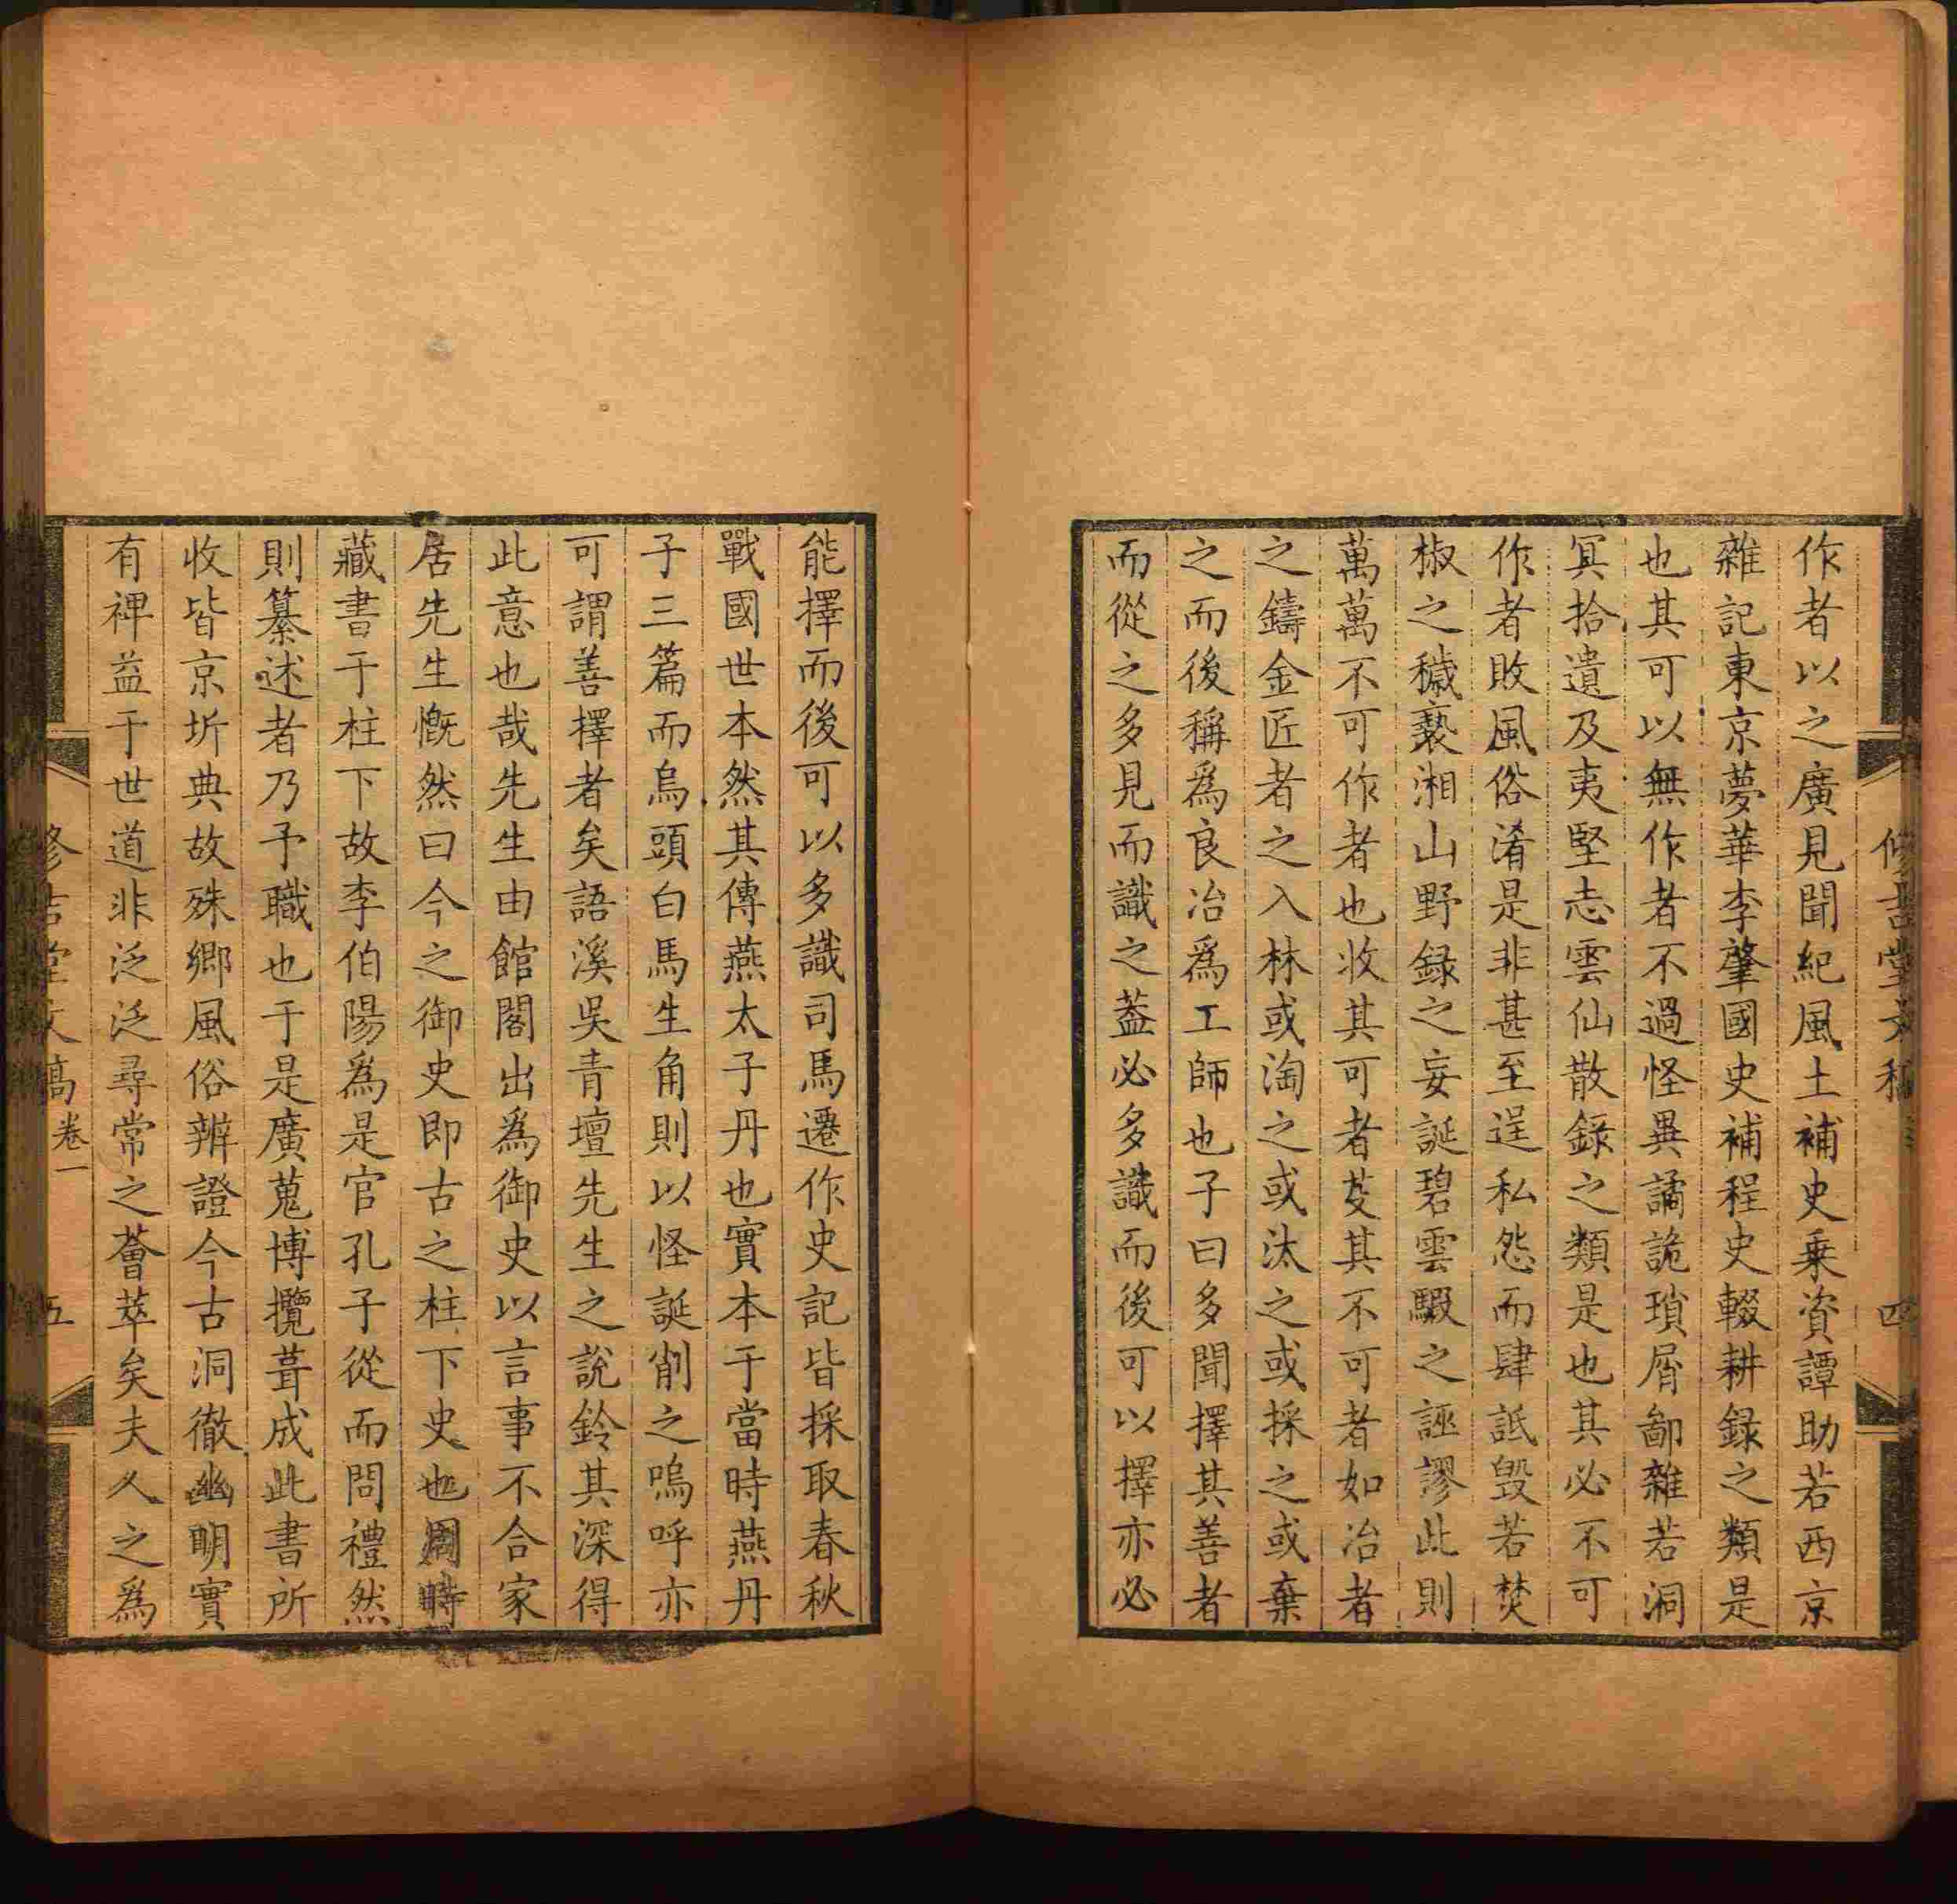 作者以之廣見聞紀風土補史乗資譚助若西京
雜記東京夢華李肇國史補程史輟耕録之類是
也其可以無作者不過怪異譎詭瑣屑鄙雜若洞
冥拾遺及夷堅志雲仙散錄之類是也其必不可
作者敗風俗淆是非甚至逞私怨而肆詆毁若焚
椒之穢褻湘山野録之妄誕碧雲騢之誣謬此則
萬萬不可作者也收其可者芟其不可者如冶者
之鑄金匠者之入林或淘之或汰之或採之或棄
之而後稱爲良冶爲工師也子曰多聞擇其善者
而從之多見而識之葢必多識而後可以擇亦必
能擇而後可以多識司馬遷作史記皆採取春秋
戰國世本然其傳燕太子丹也實本于當時燕丹
子三篇而烏頭白馬生角則以怪誕削之嗚呼亦
可謂善擇者矣語溪吳青壇先生之說鈴其深得
此意也哉先生由館閣出爲御史以言事不合家
居先生慨然曰今之御史即古之柱下史也周時
藏書于柱下故李伯陽爲是官孔子從而問禮然
則纂述者乃予職也于是廣蒐博攬葺成此書所
收皆京圻典故殊鄉風俗辨證今古洞徹幽明實
有裨益于世道非泛泛尋常之薈萃矣夫人之爲
修吉堂文稿 卷一 五